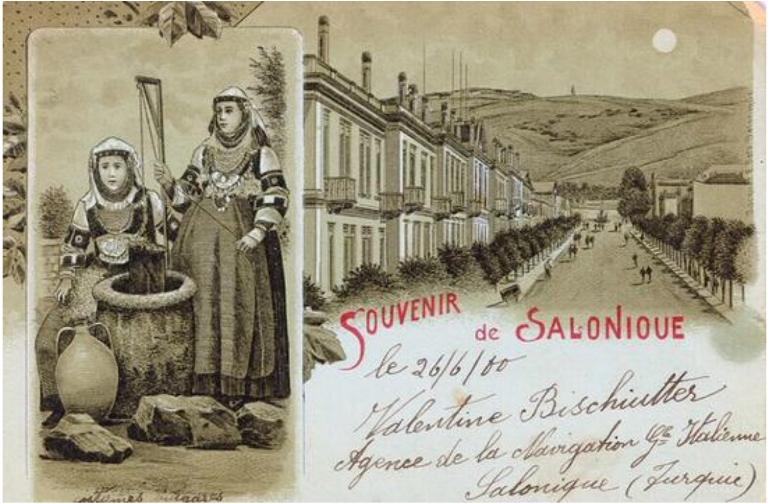 SOUVENIR de SALONIQUE
le 26/6/00
Valentine Bischiutter
Agence de la Navigation Gle Italienne
Salonique (Turquie)
Costumes bulgares